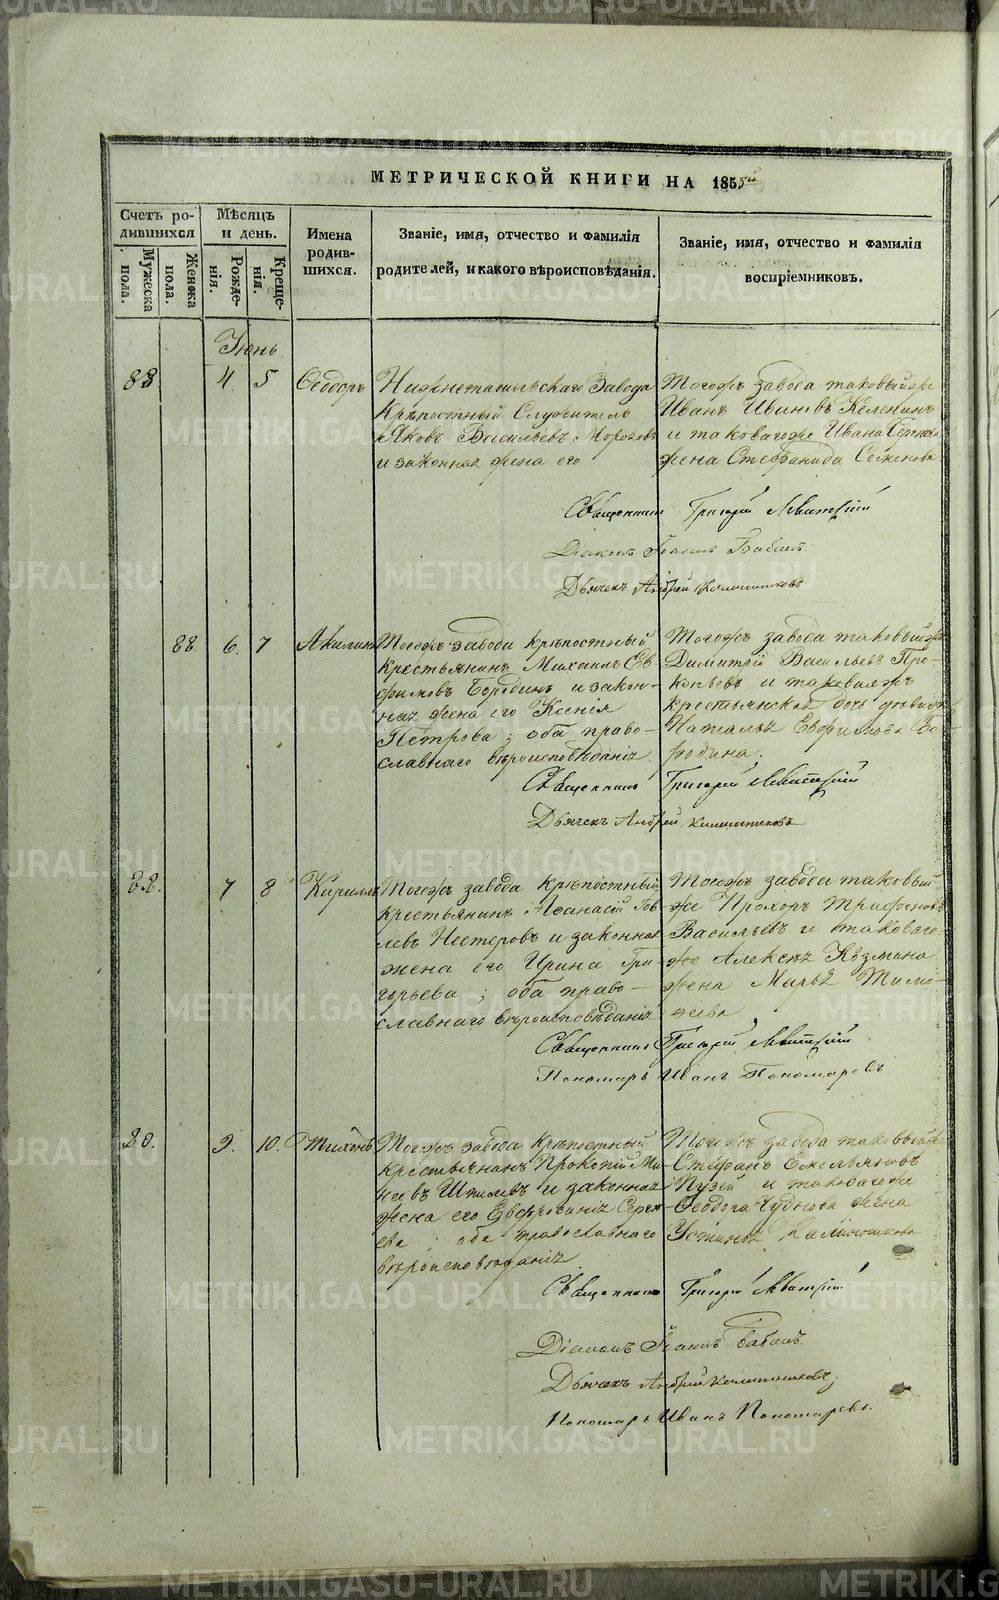 МЕТРИЧЕСКОЙ КНИГИ НА 1855й
Счетъ ро-
дившихся
Мужеска пола.
Женска пола.
Мѣсяцъ
и день.
Рожде-
нія.
Креще-
нія.
Имена
родив-
шихся.
Званіе, имя, отчество и фамилія
родителей, и какого вѣроисповѣданія.
Званіе, имя, отчество и фамилія
воспріемниковъ.
Іюнь
88 4. 5 Ѳеодоръ
Нижнетагильскаго Завода
Крѣпостный Служитель
Яковъ Васильевъ Морозовъ
и законная жена его
Тогожъ завода таковый же
Иванъ Ивановъ
и таковагоже Ивана
жена Стефанида Семенова
Священникъ Григорій Левитскій
Діаконъ Іоаннъ Бабинъ
Дьячекъ Андрей Калашниковъ
88. 6. 7 Акилина
Тогожъ завода крѣпостный
крестьянинъ Михаилъ Ев-
фимовъ Бородинъ и закон-
ная жена его Ксенія
Петрова; оба право-
славнаго вѣроисповѣданія.
Тогожъ завода таковый же
Димитрій Васильевъ Про-
копьевъ и таковаяжъ
крестьянская дочь дѣвица
Наталья Евфимова Бо-
родина.
Священникъ Григорій Левитскій
Дьячекъ Андрей Калашниковъ
89. 7 8 Кириллъ
Тогожъ завода Крѣпостный
крестьянинъ Аѳанасій
Нестеровъ и законная
жена его Ирина Гри-
горьева; оба право-
славнаго вѣроисповѣданія
Тогожъ завода таковый
же Прохоръ Трифоновъ
Васильевъ и таковаго
же Алексѣя Кузмина
жена Марья Тимо-
ѳеева
Священникъ Григорій Левитскій
Пономарь Иванъ Пономаревъ
90. 9. 10. Тихонъ
Тогожъ завода Крѣпостный
Крестьянинъ Прокопій Ми-
неевъ и законная
жена его Евфросинія Серге-
ева; оба православнаго
вѣроисповѣданія
Тогожъ завода таковый же
Стефанъ Емельяновъ
и таковагоже
Ѳеодора Чуднова жена
Устинья Калашникова
Священникъ Григорій Левитскій
Діаконъ Іоаннъ Бабинъ
Дьячекъ Андрей Калашниковъ
Пономарь Иванъ Пономаревъ.
METRIKI.GASO-URAL.RU